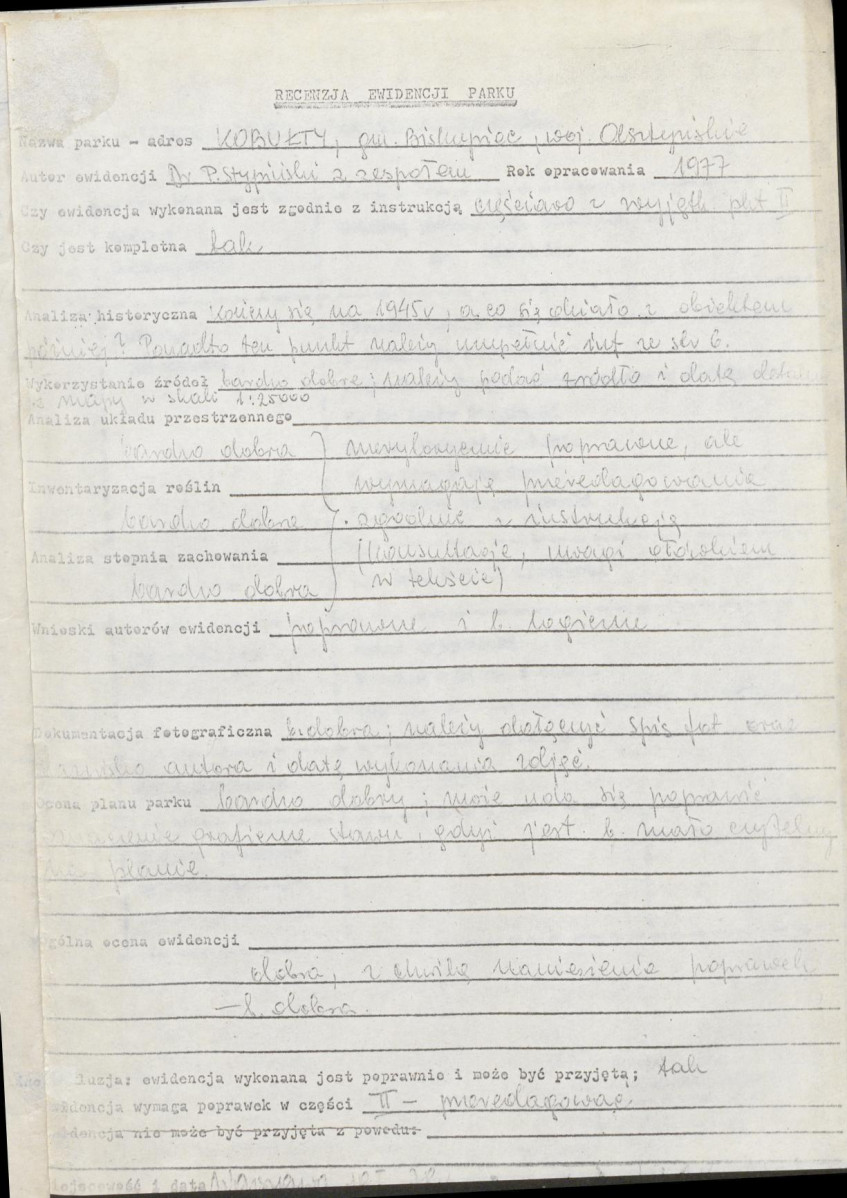 RECENZJA EWIDENCJI PARKU
Nazwa parku - adres KOBUŁTY, gm. Biskupiec, woj. Olsztyńskie
Autor ewidencji Dr P. Stypiński z zespołem Rok opracowania 1977
Czy ewidencja wykonana jest zgodnie z instrukcją częściowo z wyjątk. pkt II
Czy jest kompletna tak
Analiza historyczna kończy się na 1945 r, a co się działo z obiektem
później? Ponadto ten punkt należy uzupełnić inf ze str 6.
Wykorzystanie źródeł bardzo dobre; należy podać źródło i datę
mapy w skali 1:25000
Analiza układu przestrzennego
bardzo dobra merytorycznie poprawne, ale
Inwentaryzacja roślin wymagają przeredagowania
bardzo dobra zgodnie z instrukcją
Analiza stopnia zachowania (konsultacje, uwagi ołówkiem
bardzo dobra w tekście)
Wnioski autorów ewidencji poprawne i b. logiczne
Dokumentacja fotograficzna b. dobra; należy dołączyć spis fot oraz
nazwisko autora i datę wykonania zdjęć.
Ocena planu parku bardzo dobry; może uda się poprawić
oznaczenie graficzne stawu, gdyż jest b. mało czytelny
na planie.
Ogólna ocena ewidencji
dobra, z chwilą naniesienia poprawek
- b. dobra.
luzja: ewidencja wykonana jest poprawnie i może być przyjęta; tak
widencja wymaga poprawek w części II - przeredagować
widencja nie może być przyjęta z powodu:
iejscowość i data Warszawa